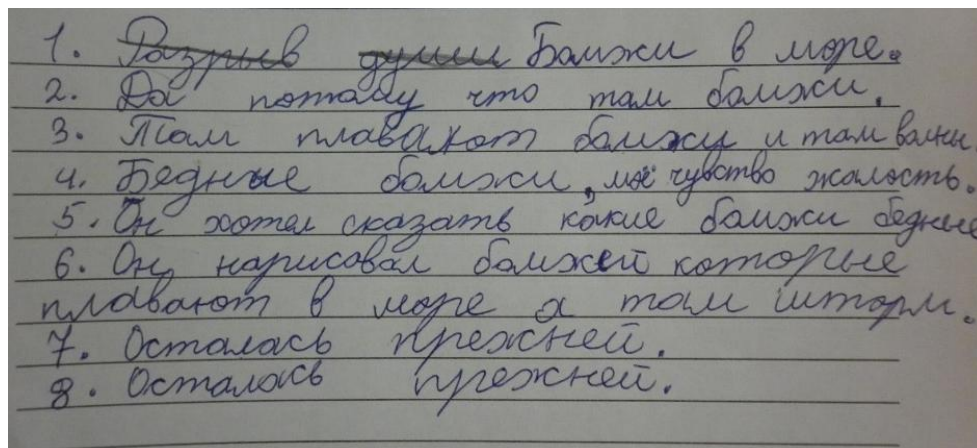 1. Разрыв души Бомжи в море.
2. Да потому что там бомжи.
3. Там плавают бомжи и там волны.
4. Бедные бомжи, моё чувство жалость.
5. Он хотел сказать какие бомжи бедные
6. Он нарисовал бомжей которые
плавают в море а там шторм.
7. Осталась прежней.
8. Осталась прежней.